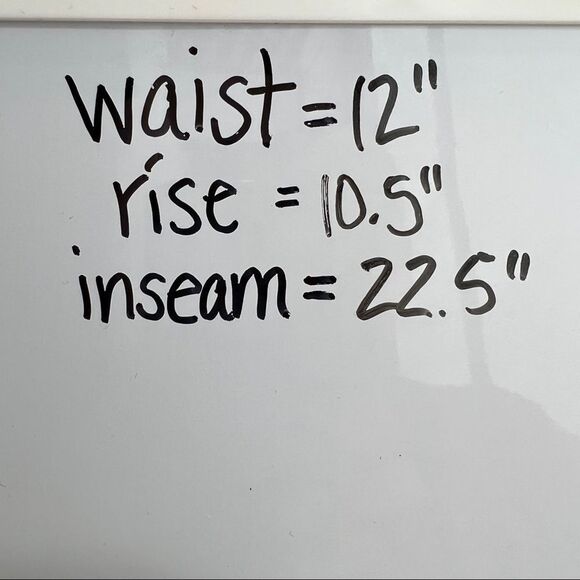 waist = 12"
rise = 10.5"
inseam = 22.5"